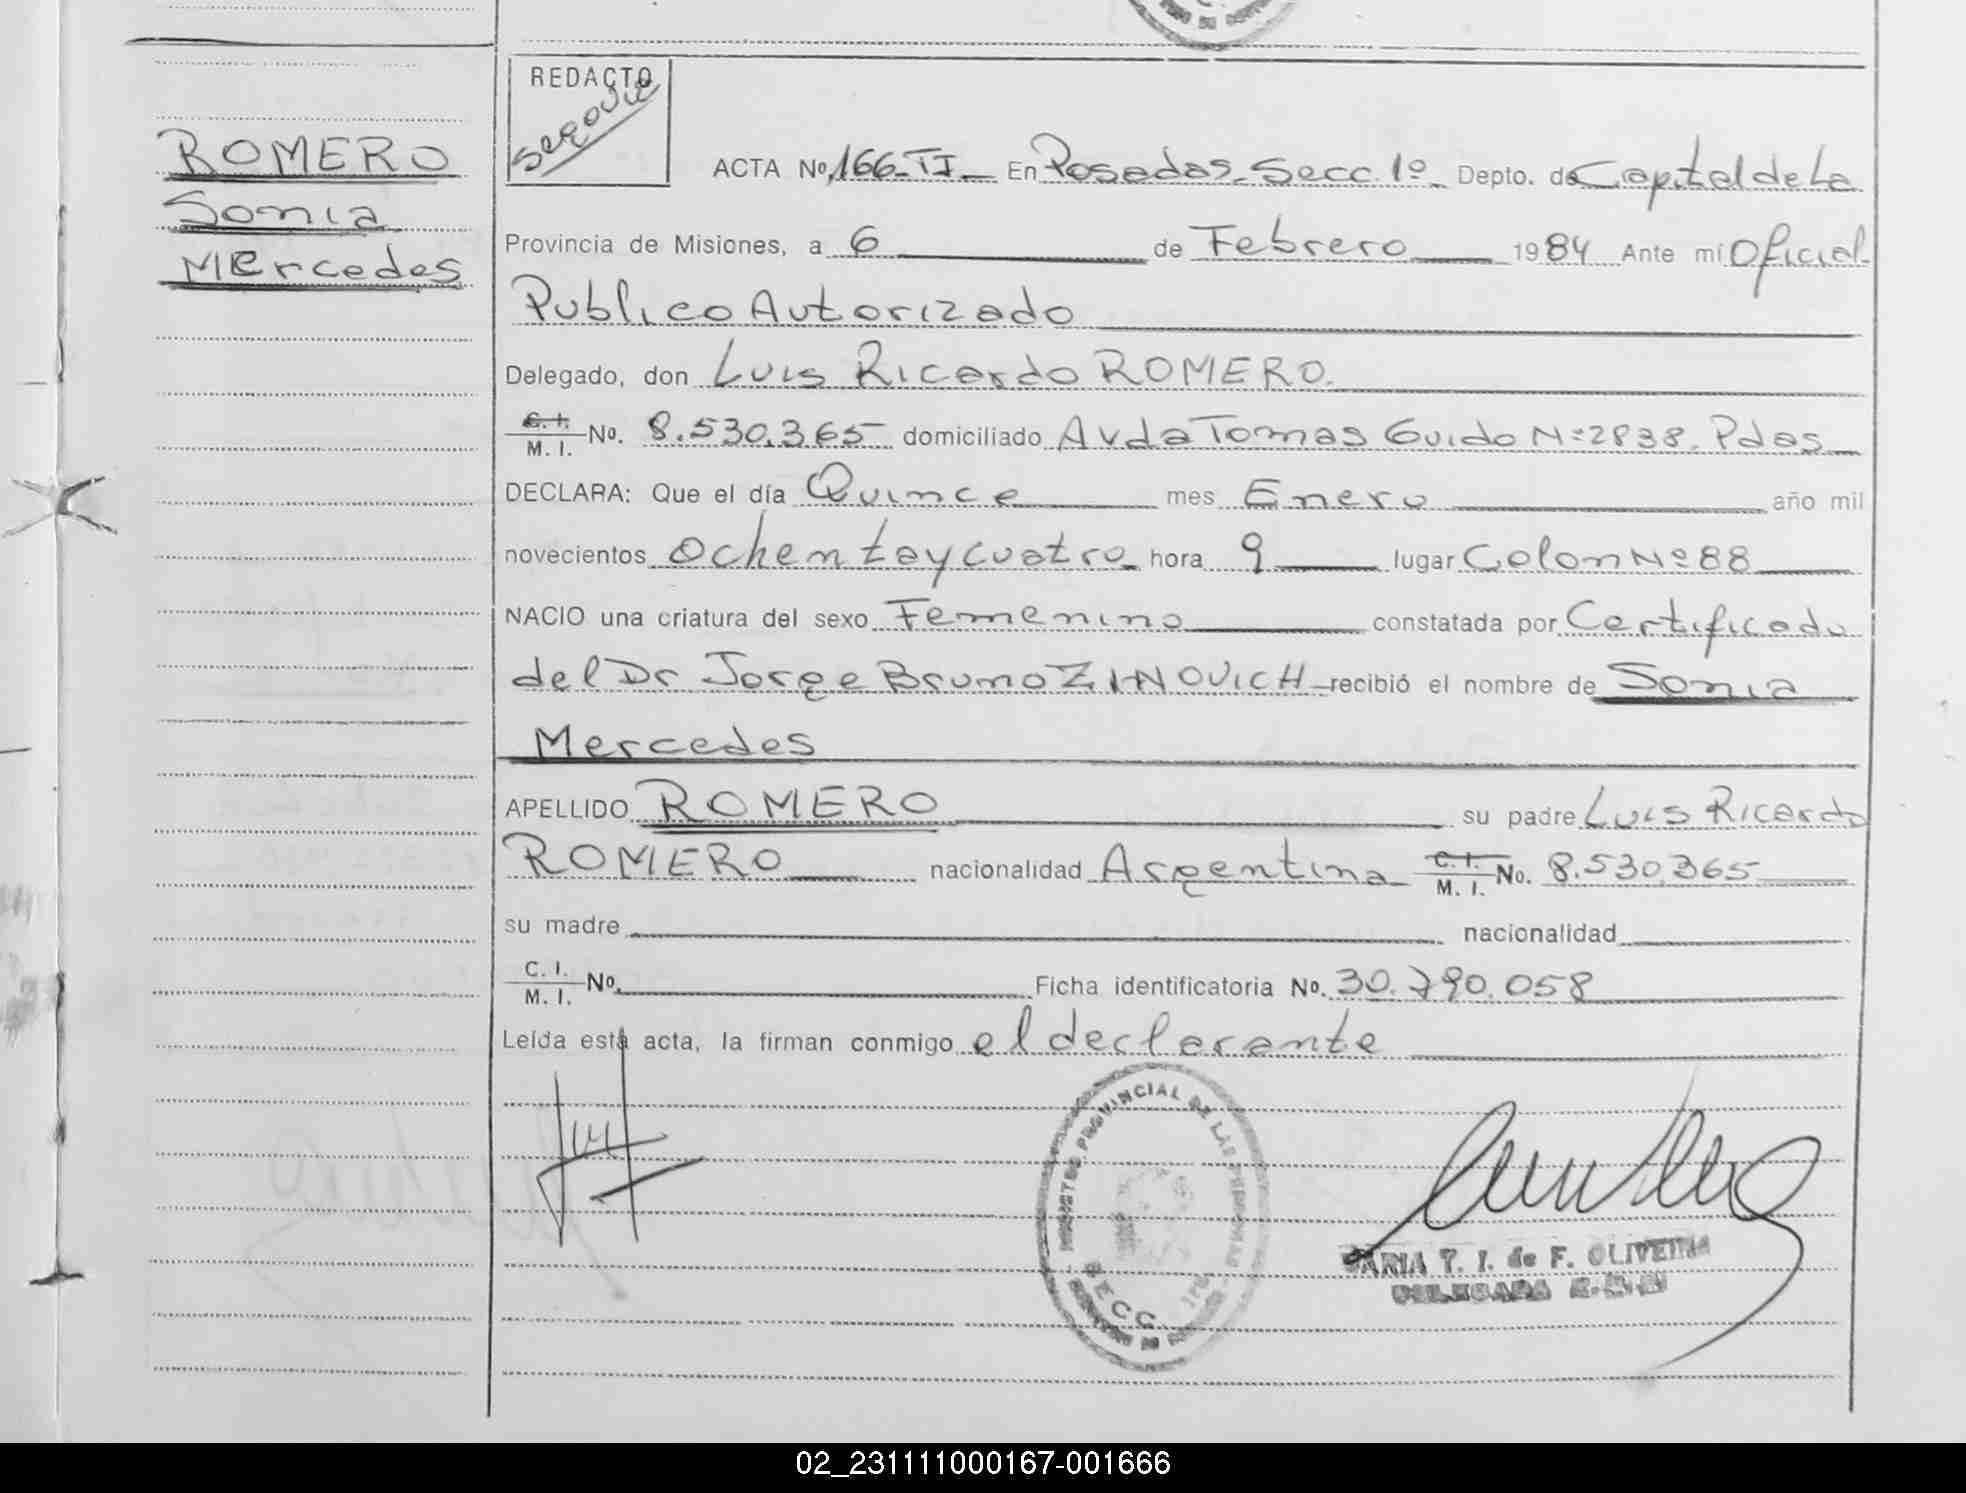 ROMERO
Sonia
Mercedes
REDACTO
Segovia
ACTA No. 166-TI- En Posadas. Secc. 1º Depto. de Capital de La
Provincia de Misiones, a 6 de Febrero 1984 Ante mí Oficial
Publico Autorizado
Delegado, don Luis Ricardo ROMERO.
C. I. M. I. No. 8.530.365 domiciliado Avda Tomas Guido Nº 2838. Pdas
DECLARA: Que el día Quince mes Enero año mil
novecientos Ochentaycuatro hora 9 lugar Colon Nº 88
NACIO una criatura del sexo Femenino constatada por Certificado
del Dr Jorge Bruno ZINOVICH recibió el nombre de Sonia
Mercedes
APELLIDO ROMERO su padre Luis Ricardo
ROMERO nacionalidad Argentina C. I. M. I. No. 8.530.365
su madre nacionalidad
C. I. M. I. No. Ficha identificatoria No. 30.790.058
Leída está acta, la firman conmigo el declarante
REGISTRO PROVINCIAL DE LAS PERSONAS
SECC.
MARIA T. I. de F. OLIVEIRA
DELEGADA
02_231111000167-001666